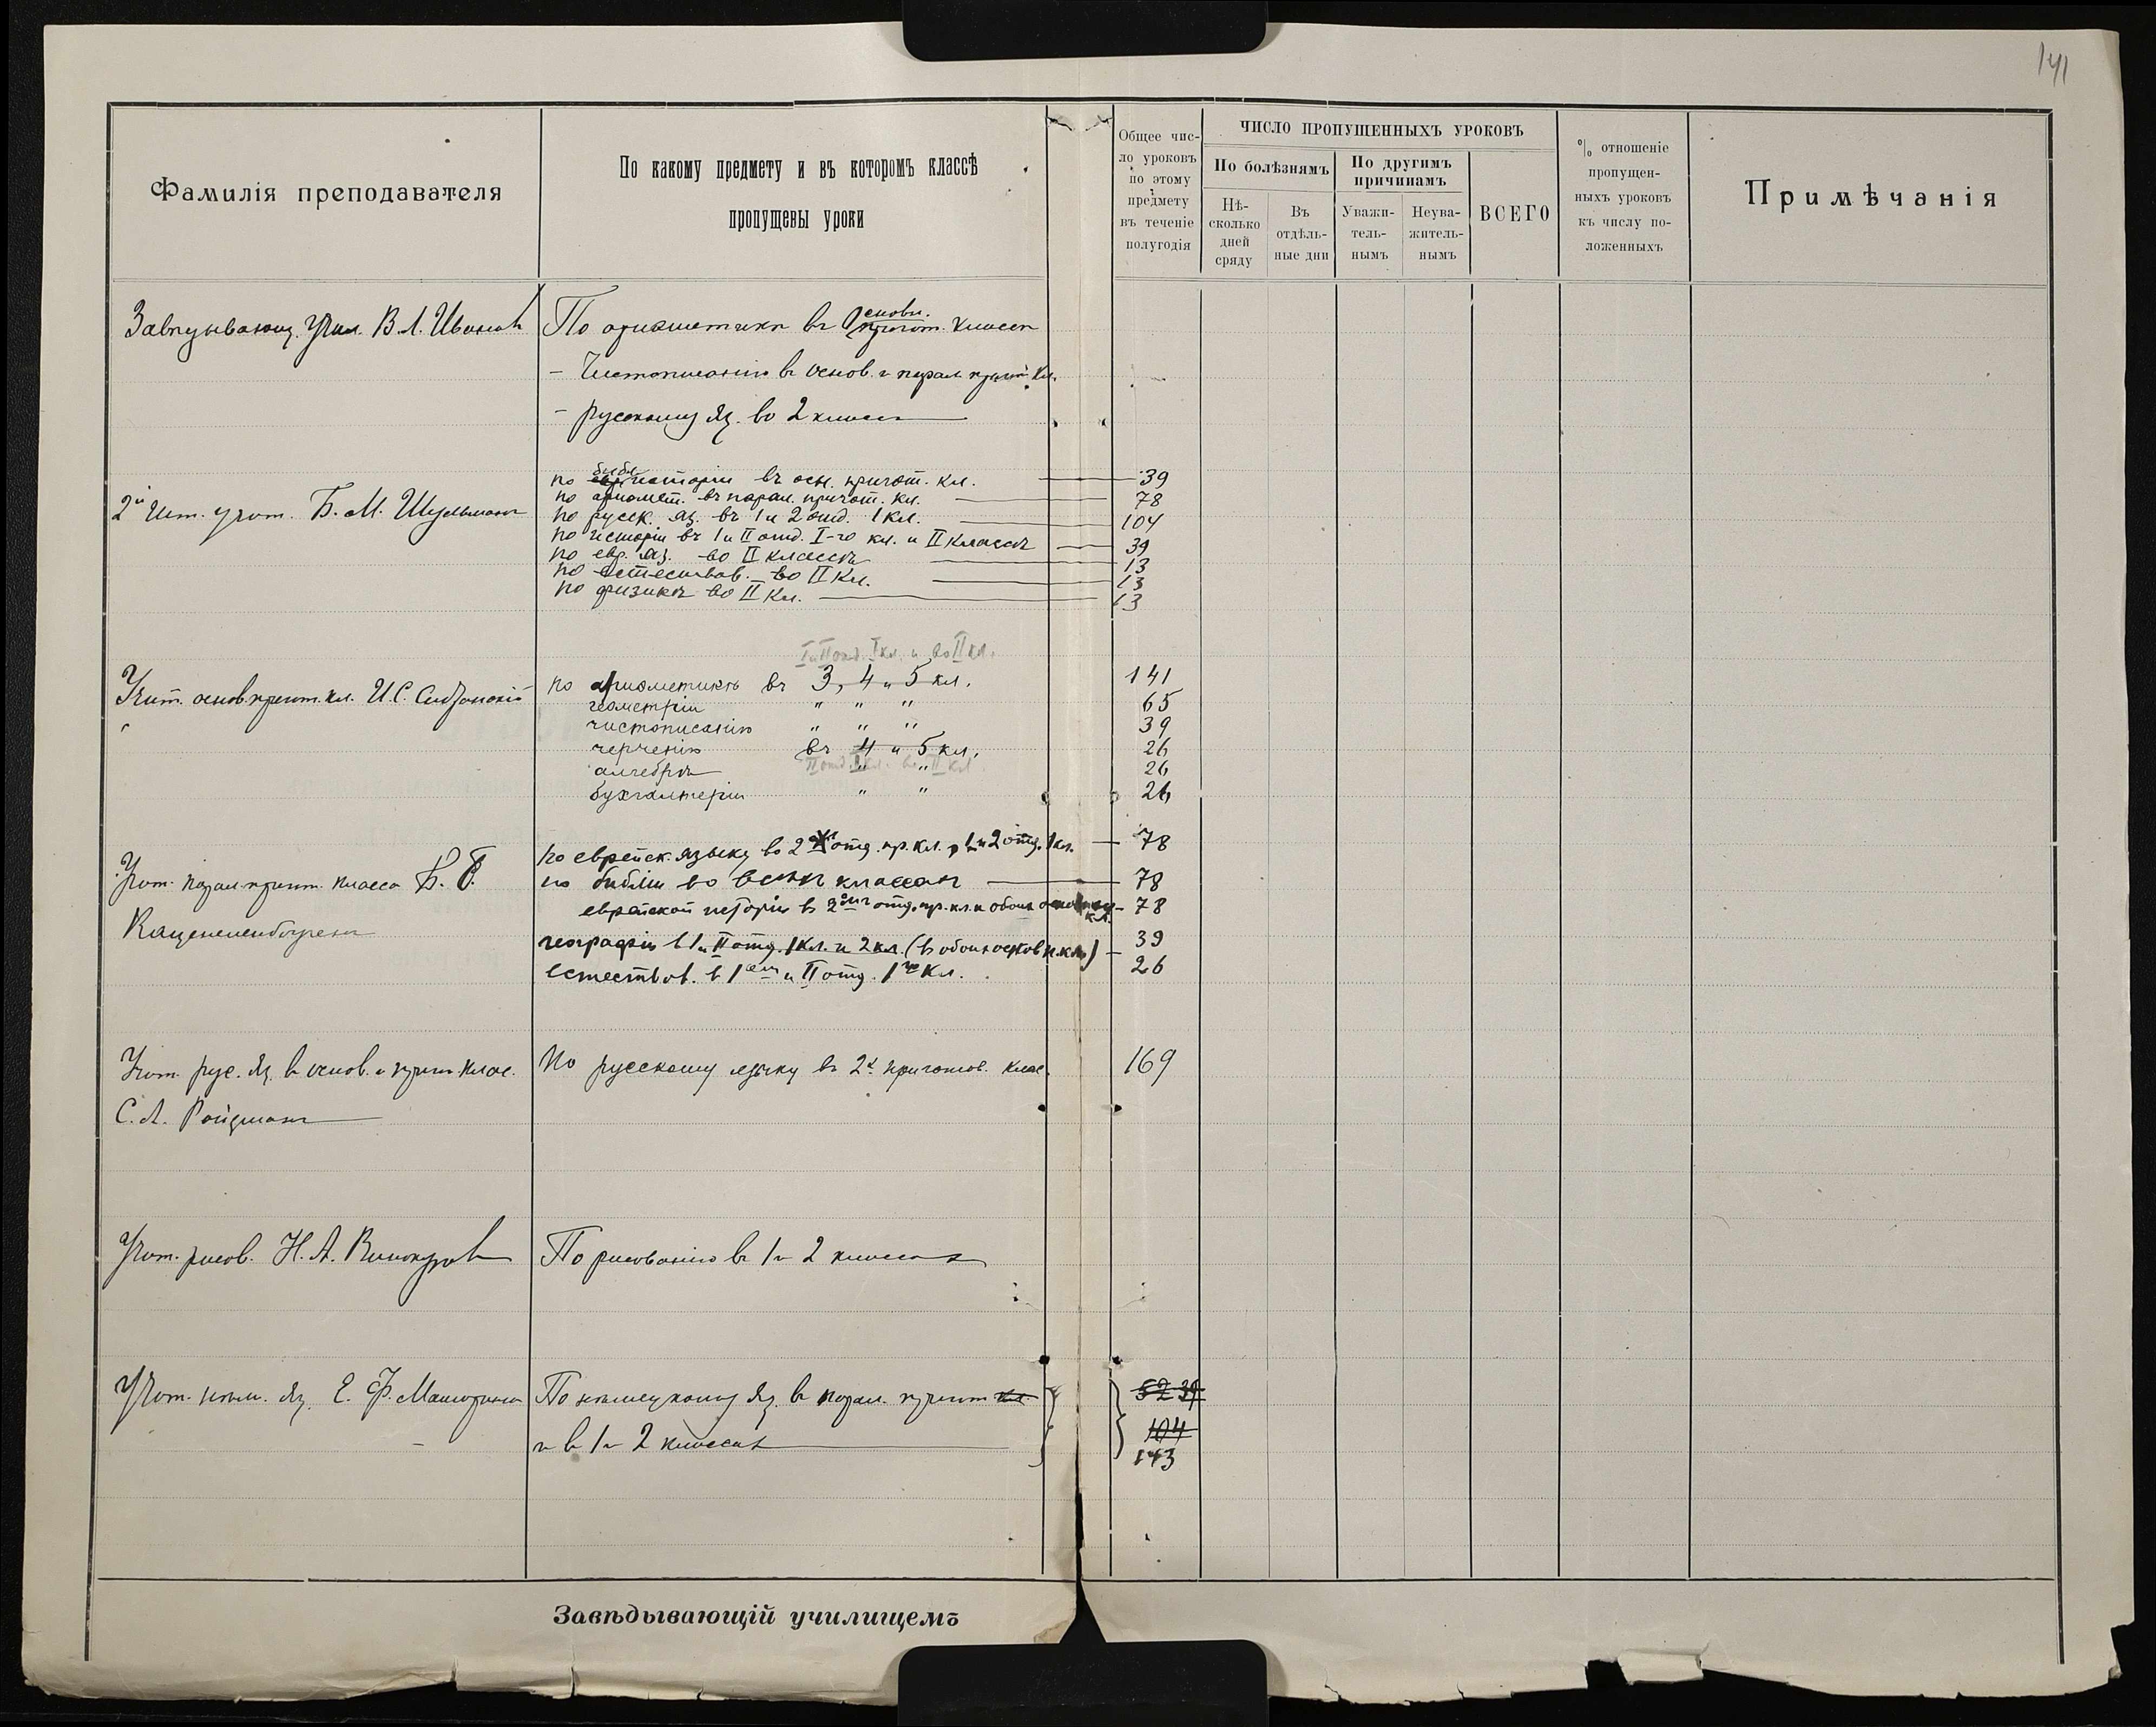 141
Фамилія преподавателя
По какому предмету и въ которомъ классѣ
пропущены уроки
Общее чис-
ло уроковъ
по этому
предмету
въ теченіе
полугодія
ЧИСЛО ПРОПУЩЕННЫХЪ УРОКОВЪ
По болѣзнямъ
По другимъ
причинамъ
Нѣ-
сколько
дней
сряду
Въ
отдѣль-
ные дни
Уважи-
тель-
нымъ
Неува-
житель-
нымъ
ВСЕГО
% отношеніе
пропущен-
ныхъ уроковъ
къ числу по-
ложенныхъ
Примѣчанія
Завѣдывающ. Учил. В. Л. Ивановъ
По ариѳметикѣ въ Основн. пригот. классѣ
- Чистописанію въ основ. и парал. пригот. кл.
- русскому яз. во 2 классѣ
2й Шт. учит. Б. М. Шульманъ
по библ. исторіи въ осн. пригот. кл. 39
по ариѳмет. въ парал. пригот. кл. 78
по русск. яз. въ 1 и 2 отд. 1 кл. 104
по исторіи въ I и II отд. I-го кл. и II классѣ 39
по евр. яз. во II классѣ 13
по естествов. во II кл. 13
по физикѣ во II кл. 13
I и II отд. I кл. и во II кл.
Учит. основ. пригот. кл. И. С.
по ариѳметикѣ въ 3, 4 и 5 кл. 141
геометріи " " " 65
чистописанію " " " 39
черченію въ 4 и 5 кл. 26
II отд. I кл. во II кл.
алгебрѣ " " 26
бухгалтеріи " " 26
Учит. парал. пригот. класса Б. Г.
Каценеленбогенъ
по еврейск. языку во 2 отд. пр. кл., 1 и 2 отд. 1 кл. — 78
по библіи во всѣхъ классахъ — 78
еврейской исторіи въ 2 отд. пр. кл. и обоихъ кл. — 78
географіи в 1 и II отд. 1 кл. и 2 кл. (в обоих основн. кл.) — 39
естествов. в 1 и II отд. 1го кл. 26
Учит. рус. яз. въ основ. и пригот. клас.
С. Л. Ройзманъ
По русскому языку въ 2х приготов. клас. 169
Учит. рисов. Н. А. Винокуровъ
По рисованію въ 1 и 2 классахъ
Учит. нѣм. яз. Е. Ф.
По нѣмецкому яз. въ парал. пригот. кл.
и въ 1 и 2 классахъ
52 39
104
143
Завѣдывающій училищемъ